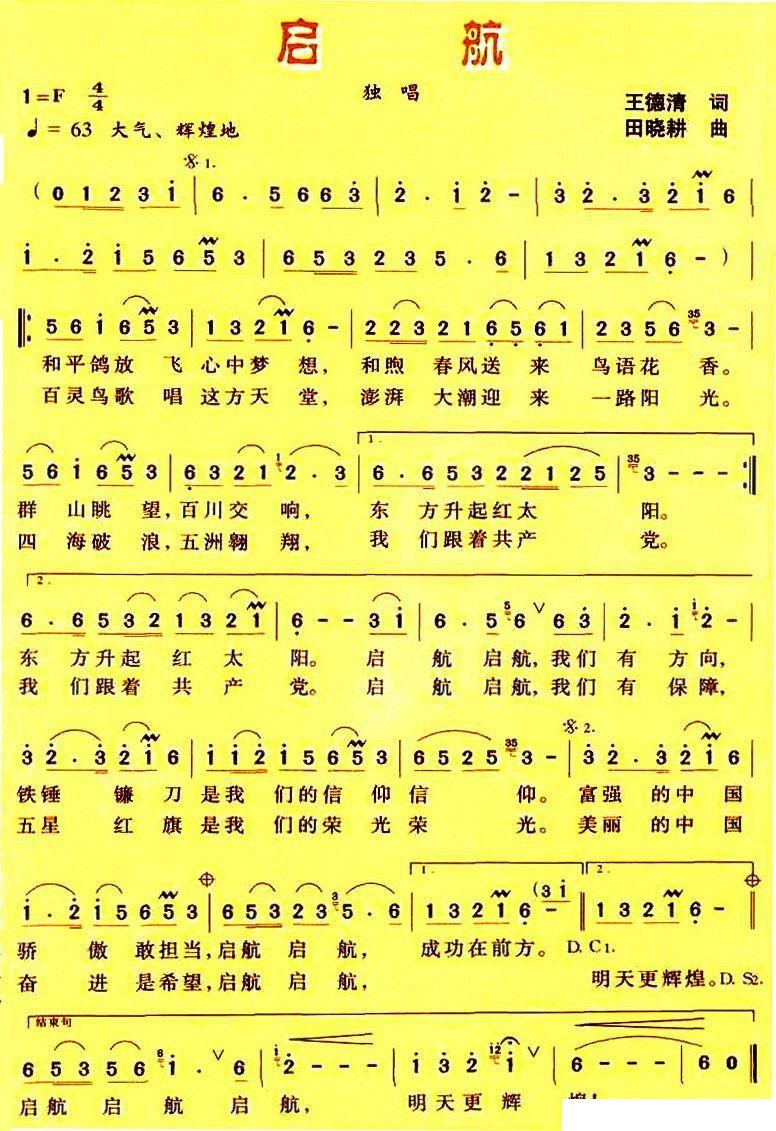 启航
1=F 4/4 独唱 王德清 词
♩= 63 大气、辉煌地 田晓耕 曲
𝄋 1.
( 0 1 2 3 i | 6 . 5 6 6 3 | 2 . i 2 - | 3 2 . 3 2 i 6 |
i . 2 i 5 6 5 3 | 6 5 3 2 3 5 . 6 | 1 3 2 1 6 - ) |
5 6 i 6 5 3 | 1 3 2 1 6 - | 2 2 3 2 1 6 5 6 1 | 2 3 5 6 35 3 - |
和平鸽放 飞 心中梦 想, 和煦 春风送 来 鸟语花 香。
百灵鸟歌 唱 这方天 堂, 澎湃 大潮迎 来 一路阳 光。
1.
5 6 i 6 5 3 | 6 3 2 1 i 2 . 3 | 6 . 6 5 3 2 2 1 2 5 | 35 3 - - - :|
群 山眺 望,百川交 响, 东 方升起红太 阳。
四 海破 浪,五洲翱 翔, 我 们跟着共产 党。
2.
6 . 6 5 3 2 1 3 2 1 | 6 - - 3 i | 6 . 5 5 6 ∨ 6 3 | 2 . i i 2 - |
东 方升起 红 太 阳。 启 航 启航,我们 有 方向,
我 们跟着 共 产 党。 启 航 启航,我们 有 保障,
𝄋 2.
3 2 . 3 2 i 6 | i i 2 i 5 6 5 3 | 6 5 2 5 35 3 - | 3 2 . 3 2 i 6 |
铁锤 镰 刀 是我 们的信 仰信 仰。 富强 的中 国
五星 红 旗 是我 们的荣 光荣 光。 美丽 的中 国
1. 2.
i . 2 i 5 6 5 3 | 6 5 3 2 3 3 5 . 6 | 1 3 2 1 6 - (3 i | 1 3 2 1 6 - ||
骄 傲 敢担当,启航 启航, 成功在前方。 D.C1.
奋 进 是希望,启航 启航, 明天更辉煌。D.S2.
结束句
6 5 3 5 6 6 i . ∨ 6 | i 2 - - - | i 3 2 i2 i ∨ | 6 - - - | 6 0 ||
启航 启 航 启航, 明天更 辉